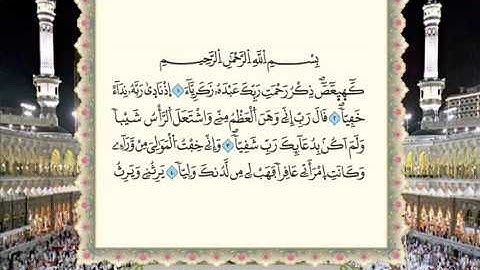 بِسْمِ ٱللَّهِ ٱلرَّحْمَٰنِ ٱلرَّحِيمِ
كٓهيعٓصٓ ذِكْرُ رَحْمَتِ رَبِّكَ عَبْدَهُۥ زَكَرِيَّآ ١ إِذْ نَادَىٰ رَبَّهُۥ نِدَآءً
خَفِيًّا ٢ قَالَ رَبِّ إِنِّى وَهَنَ ٱلْعَظْمُ مِنِّى وَٱشْتَعَلَ ٱلرَّأْسُ شَيْبًا
وَلَمْ أَكُنۢ بِدُعَآئِكَ رَبِّ شَقِيًّا ٣ وَإِنِّى خِفْتُ ٱلْمَوَٰلِىَ مِن وَرَآءِى
وَكَانَتِ ٱمْرَأَتِى عَاقِرًا فَهَبْ لِى مِن لَّدُنكَ وَلِيًّا ٤ يَرِثُنِى وَيَرِثُ